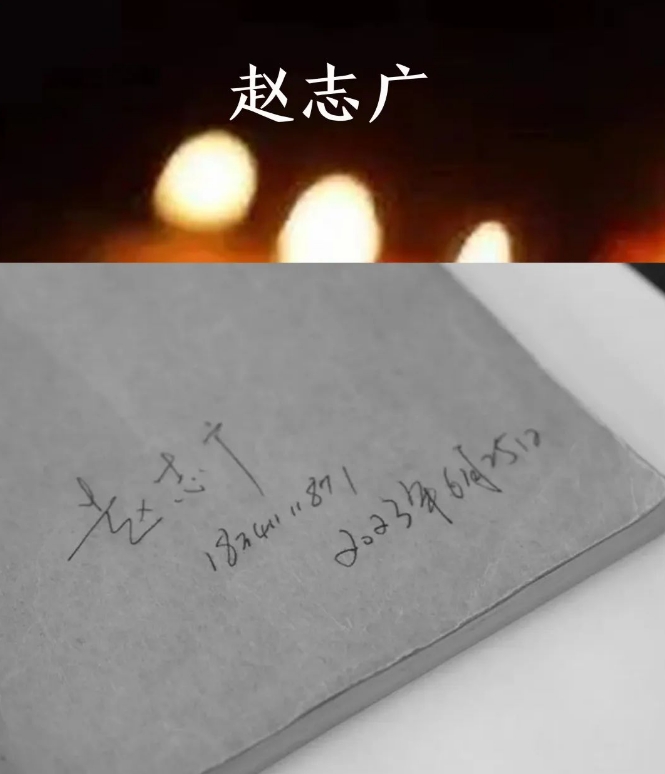 赵志广
赵志广
2023年6月25日